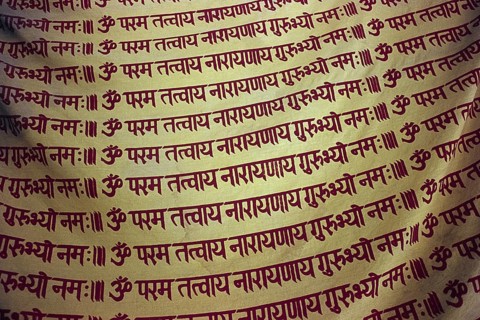 नमः।।।। ॐ परम तत्वाय नारायणाय गुरुभ्यो नमः।।।। ॐ
नमः।।।। ॐ परम तत्वाय नारायणाय गुरुभ्यो नमः।।।। ॐ परम
गुरुभ्यो नमः।।।। ॐ परम तत्वाय नारायणाय गुरुभ्यो नमः।।।। ॐ परम
गुरुभ्यो नमः।।।। ॐ परम तत्वाय नारायणाय गुरुभ्यो नमः।।।। ॐ परम
गुरुभ्यो नमः।।।। ॐ परम तत्वाय नारायणाय गुरुभ्यो नमः।।।। ॐ परम
गुरुभ्यो नमः।।।। ॐ परम तत्वाय नारायणाय गुरुभ्यो नमः।।।। ॐ परम
गुरुभ्यो नमः।।।। ॐ परम तत्वाय नारायणाय गुरुभ्यो नमः।।।। ॐ परम
गुरुभ्यो नमः।।।। ॐ परम तत्वाय नारायणाय गुरुभ्यो नमः।।।। ॐ
गुरुभ्यो नमः।।।। ॐ परम तत्वाय नारायणाय गुरुभ्यो नमः।।।। ॐ
गुरुभ्यो नमः।।।। ॐ परम तत्वाय नारायणाय गुरुभ्यो नमः।।।। ॐ
ॐ परम तत्वाय नारायणाय गुरुभ्यो नमः।।।। ॐ